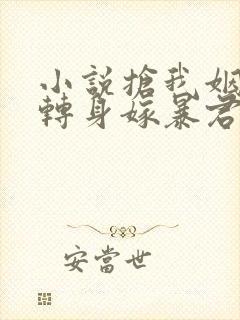 小說搶我姻
轉身嫁暴君
安當世